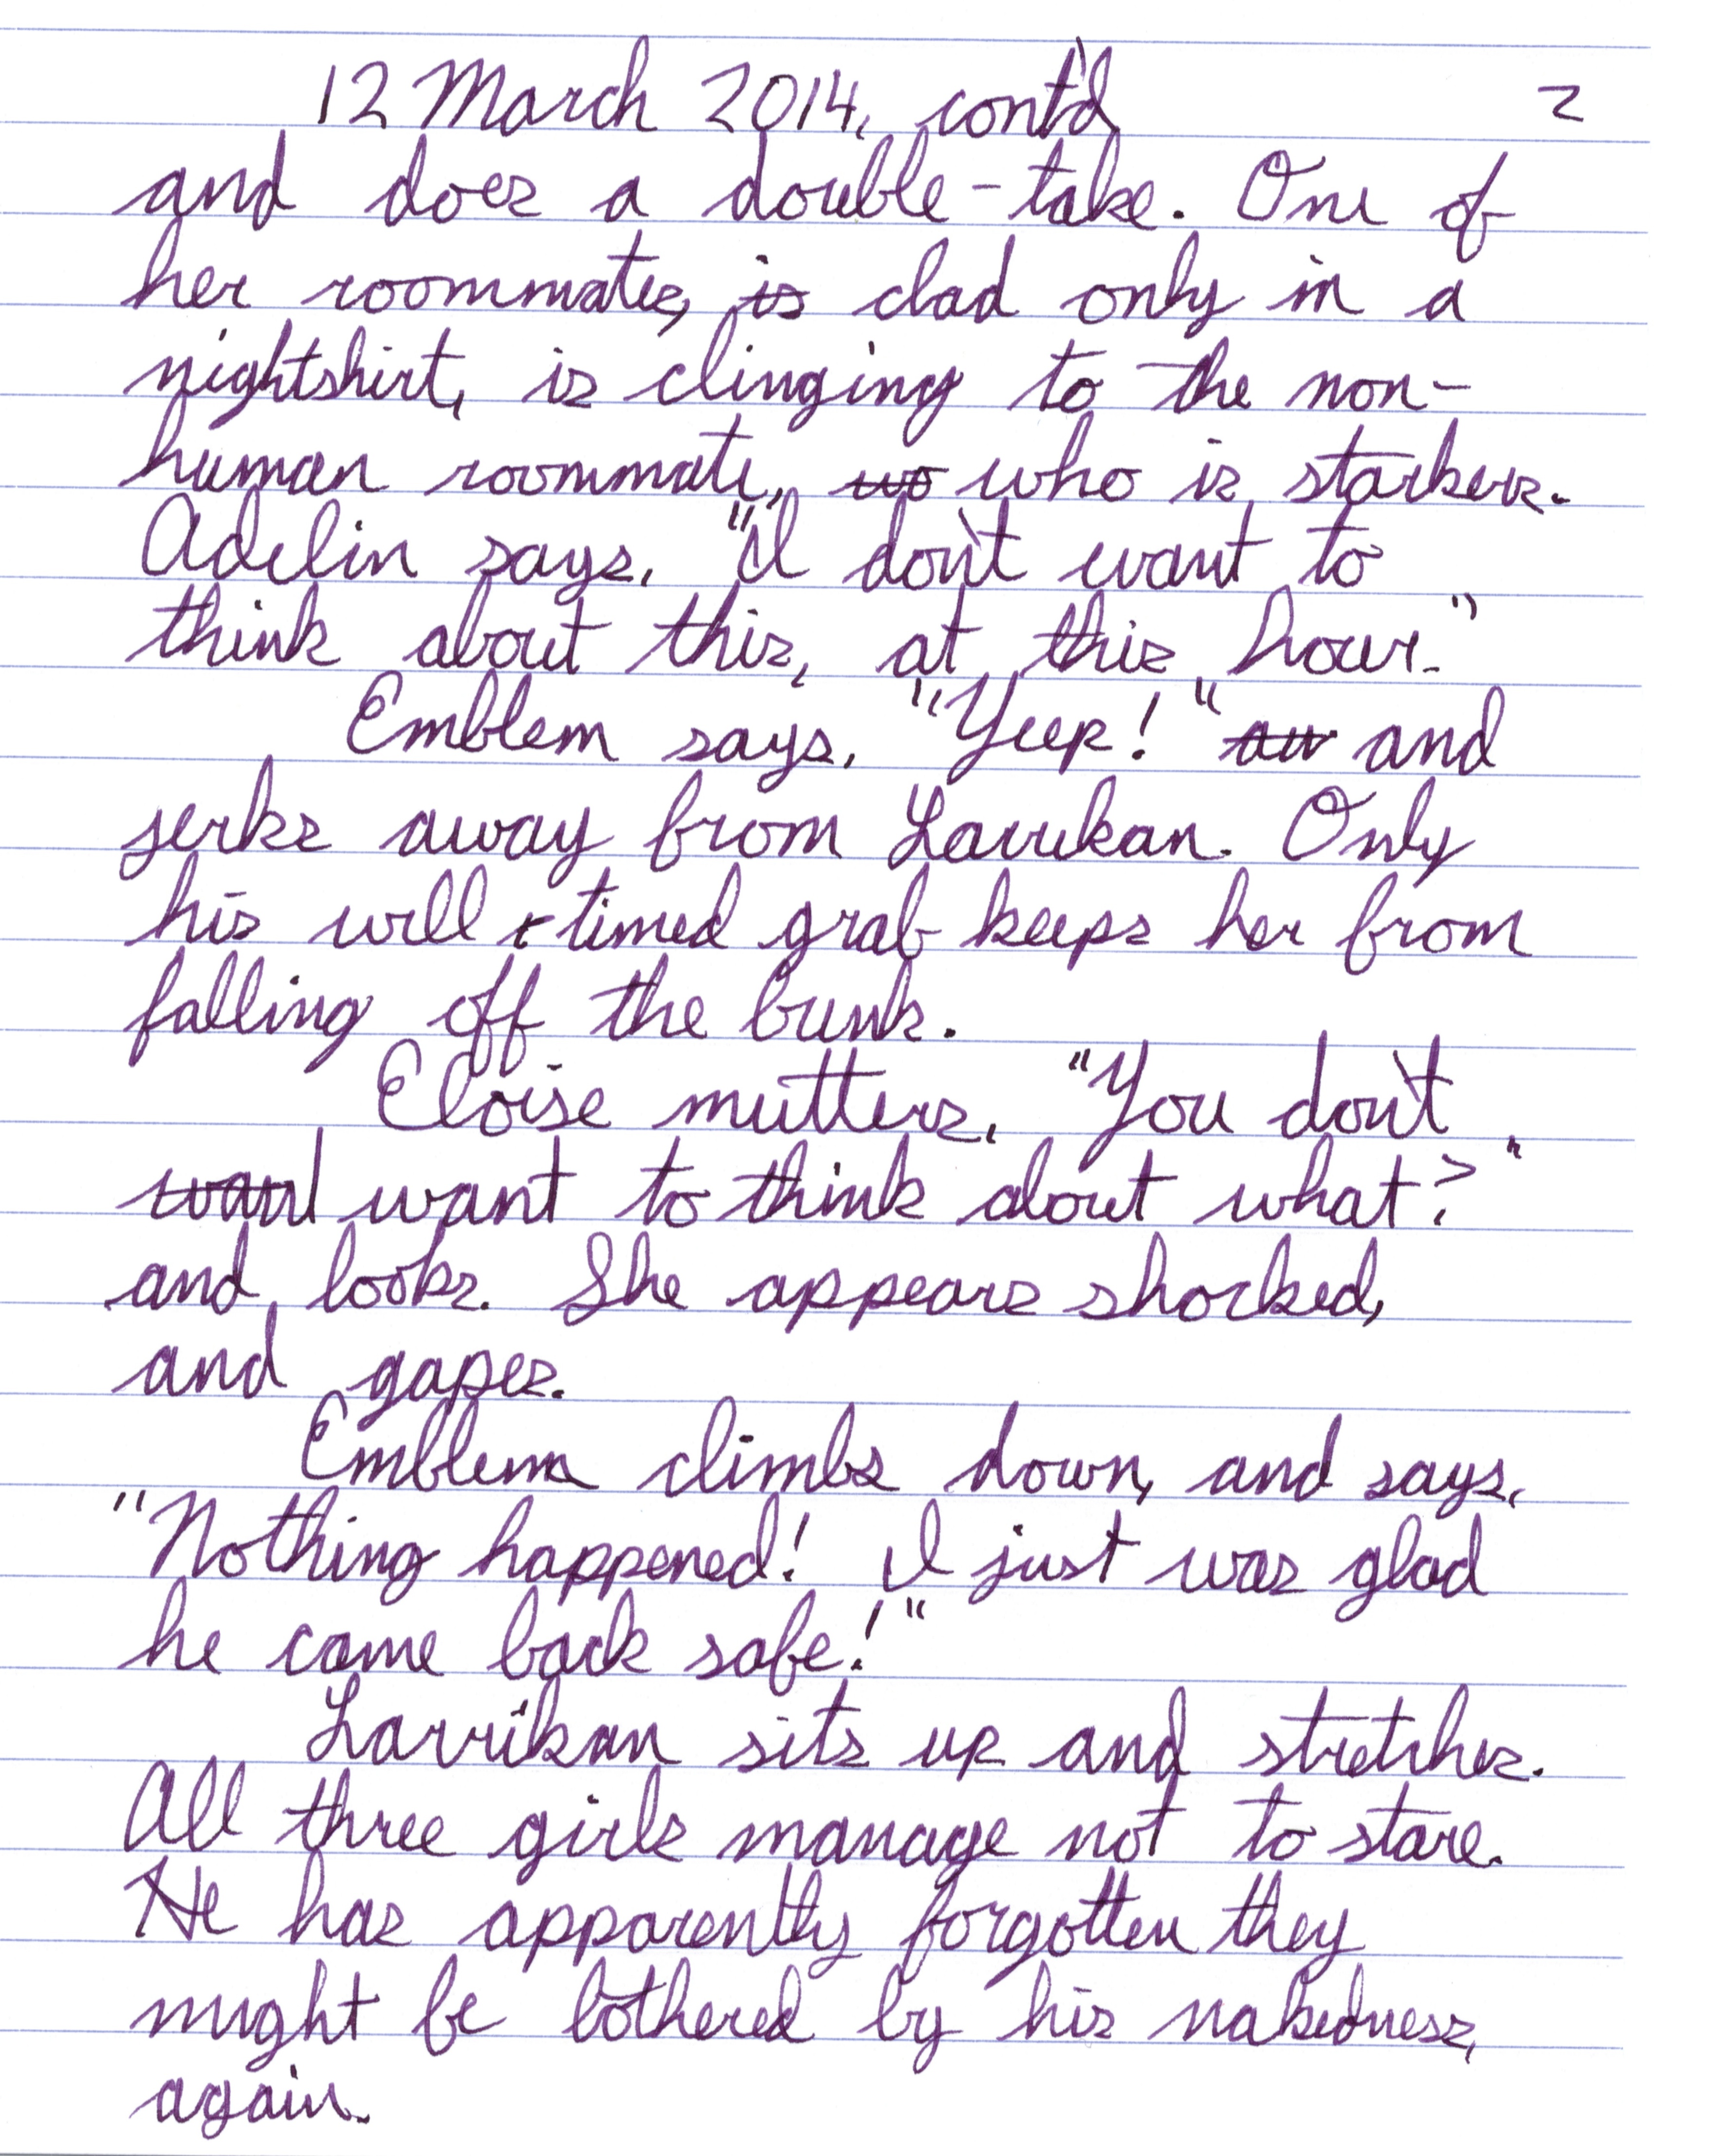 12 March 2014, cont'd 2
and does a double-take. One of
her roommates, is clad only in a
nightshirt, is clinging to the non-
human roommate, wo who is starkers.
Adelin says, "I don't want to
think about this, at this hour."
Emblem says, "Yeep!" an and
jerks away from Larrikan. Only
his well-timed grab keeps her from
falling off the bunk.
Eloise mutters, "You don't
want want to think about what?"
and looks. She appears shocked,
and gapes.
Emblem climbs down, and says,
"Nothing happened! I just was glad
he came back safe!"
Larrikan sits up and stretches.
All three girls manage not to stare.
He has apparently forgotten they
might be bothered by his nakedness,
again.